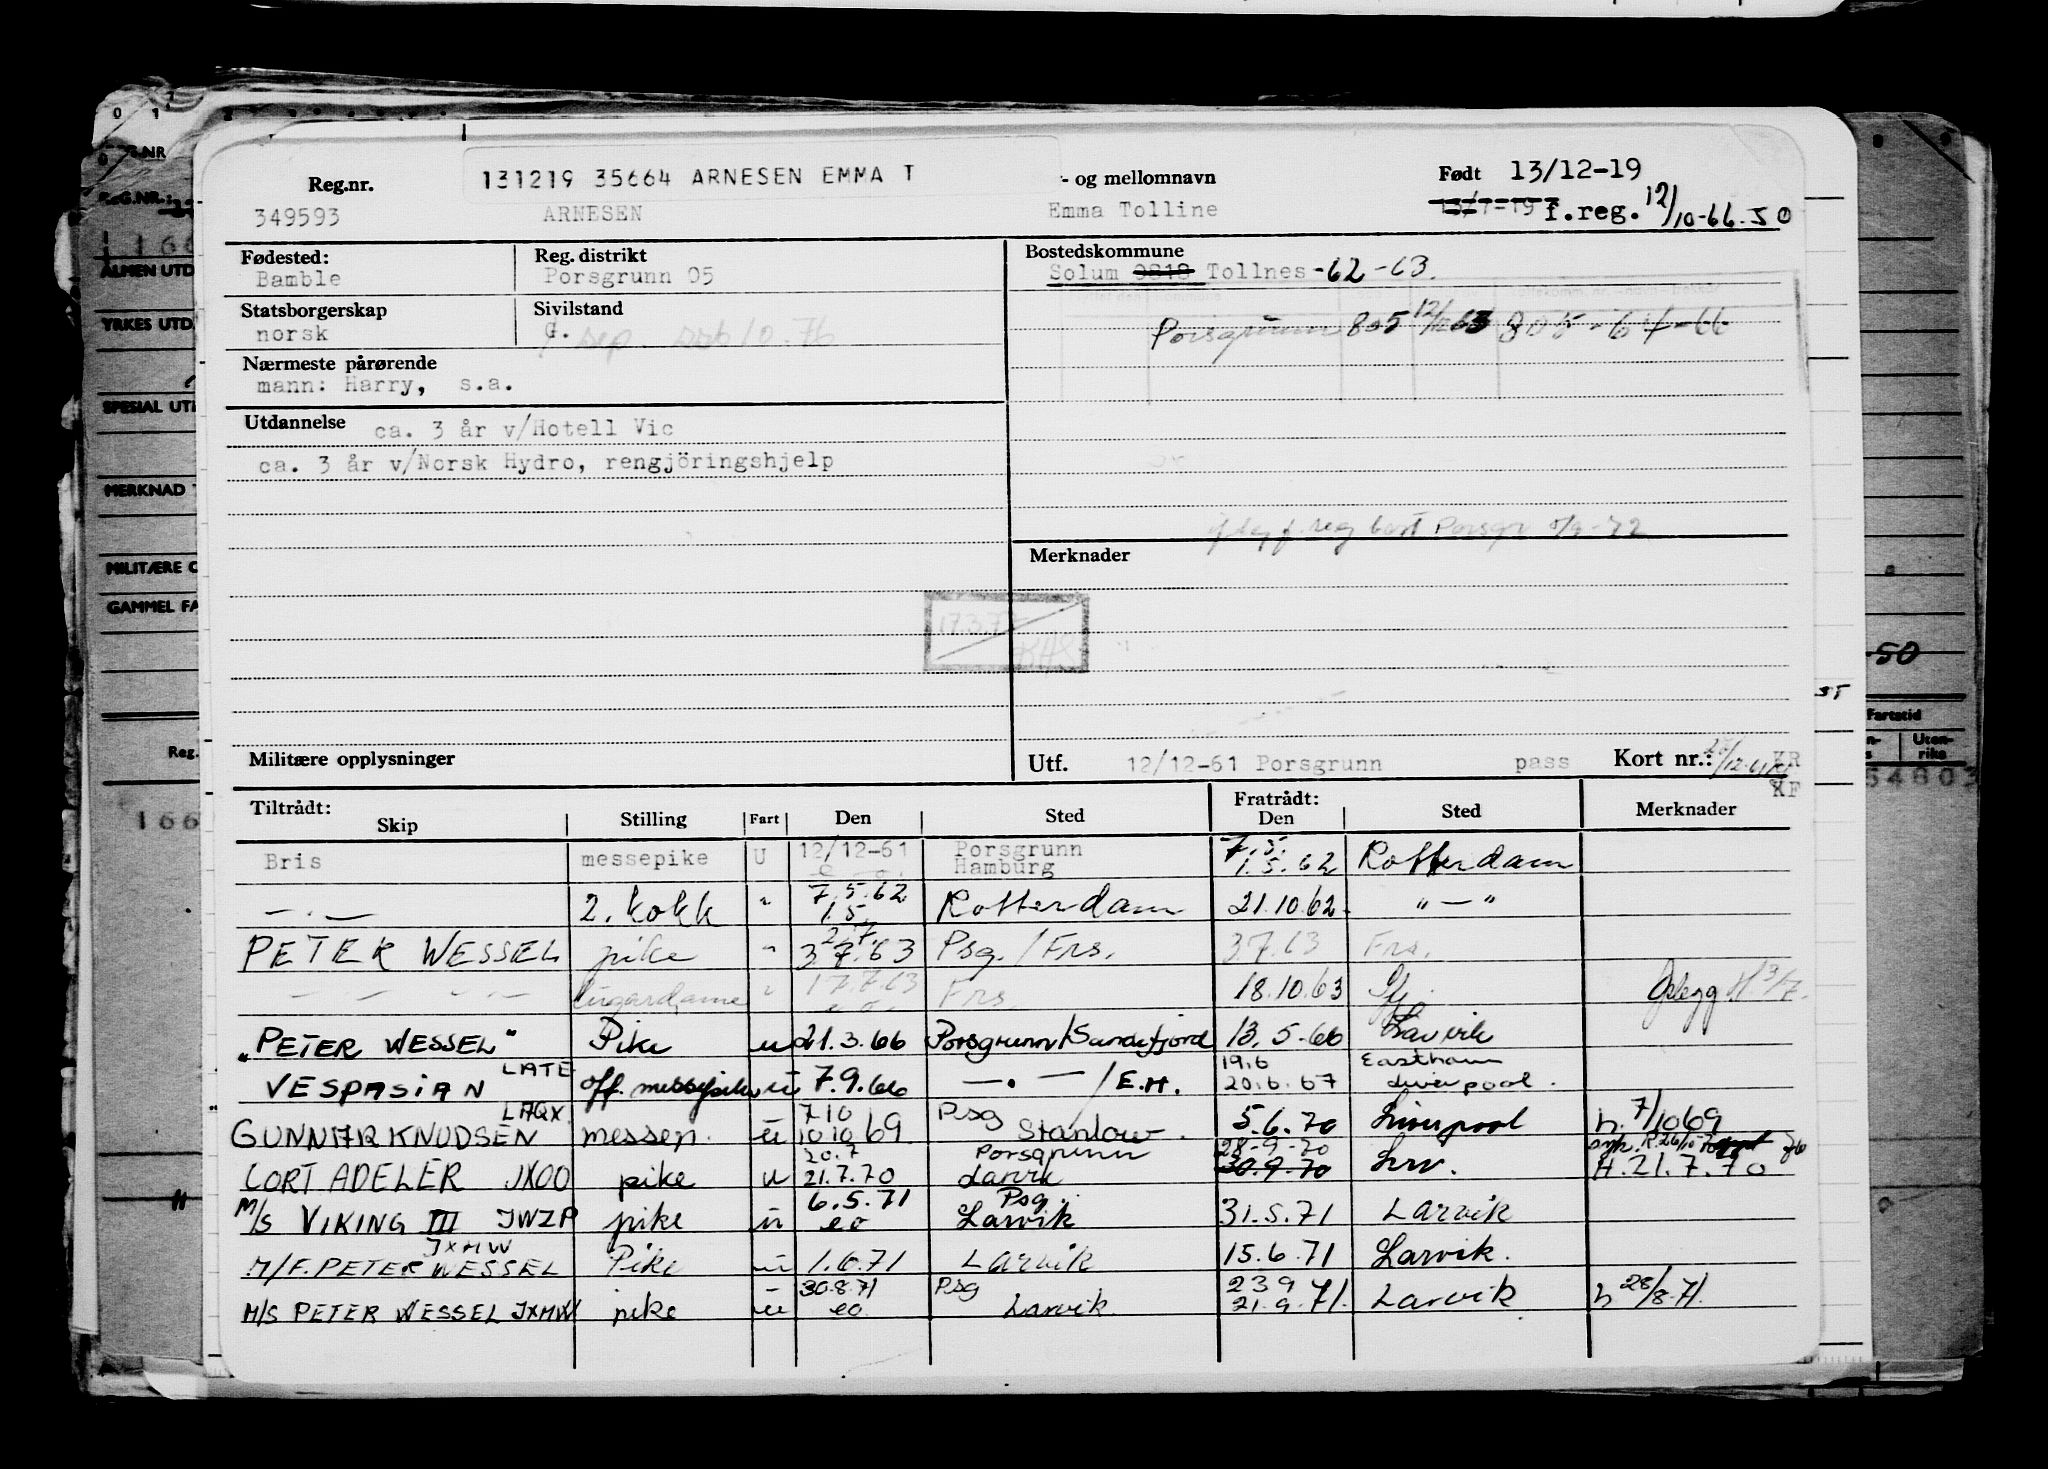 Reg.nr. 131219 35664 ARNESEN EMMA T - og mellomnavn Født 13/12-19
349593 ARNESEN Emma Tolline 13/7-19 f.reg. 12/10-66. 50
Fødested: Reg. distrikt Bostedskommune
Bamble Porsgrunn 05 Solum 0818 Tollnes -62-63.
Statsborgerskap Sivilstand
norsk G. sep. 76
Porsgrunn 805 12/ 63 805-64-66
Nærmeste pårørende
mann: Harry, s.a.
Utdannelse ca. 3 år v/Hotell Vic
ca. 3 år v/Norsk Hydro, rengjöringshjelp
f reg Porsgr -72
Merknader
17.3.7
Militære opplysninger Utf. 12/12-61 Porsgrunn pass Kort nr.: KR
KF
Tiltrådt: Fratrådt:
Skip Stilling Fart Den Sted Den Sted Merknader
Bris messepike U 12/12-61 Porsgrunn Hamburg 7.5. 1.5.62 Rotterdam
— . — 2. kokk " 7.5.62 1.5. Rotterdam 21.10.62. " — "
PETER WESSEL pike " 2.7. 3.7.63 Psg./Frs. 3.7.63 Frs.
— — — — lugardame " 17.7.63 Frs 18.10.63
"PETER WESSEL" Pike u 21.3.66 Porsgrunn/Sandefjord 13.5.66 Larvik
VESPASIAN LATE off. messepike u 7.9.66 — . — /E.H. 19.6 20.6.67 Eastham Liverpool.
GUNNAR KNUDSEN LAQX messep. u 7 10 10 10 69 Psg Stanlow. 5.6.70 Liverpool h. 7/10 69
CORT ADELER JXOO pike u 20.7 21.7.70 Porsgrunn Larvik 28-9-70 30.9.70 Lrv. H. 21.7.70
M/S VIKING III JWZP pike u 6.5.71 eo Psg Larvik 31.5.71 Larvik
M/F. PETER WESSEL JXMW Pike u 1.6.71 Larvik 15.6.71 Larvik.
M/S PETER WESSEL JXMW pike u 30.8.71 eo. Psg Larvik 23 9 21.9.71. Larvik h 28/8.71.
REG.NR.:
YRKES UTD.
MILITÆRE
50
Fartstid
Reg.
166
54803